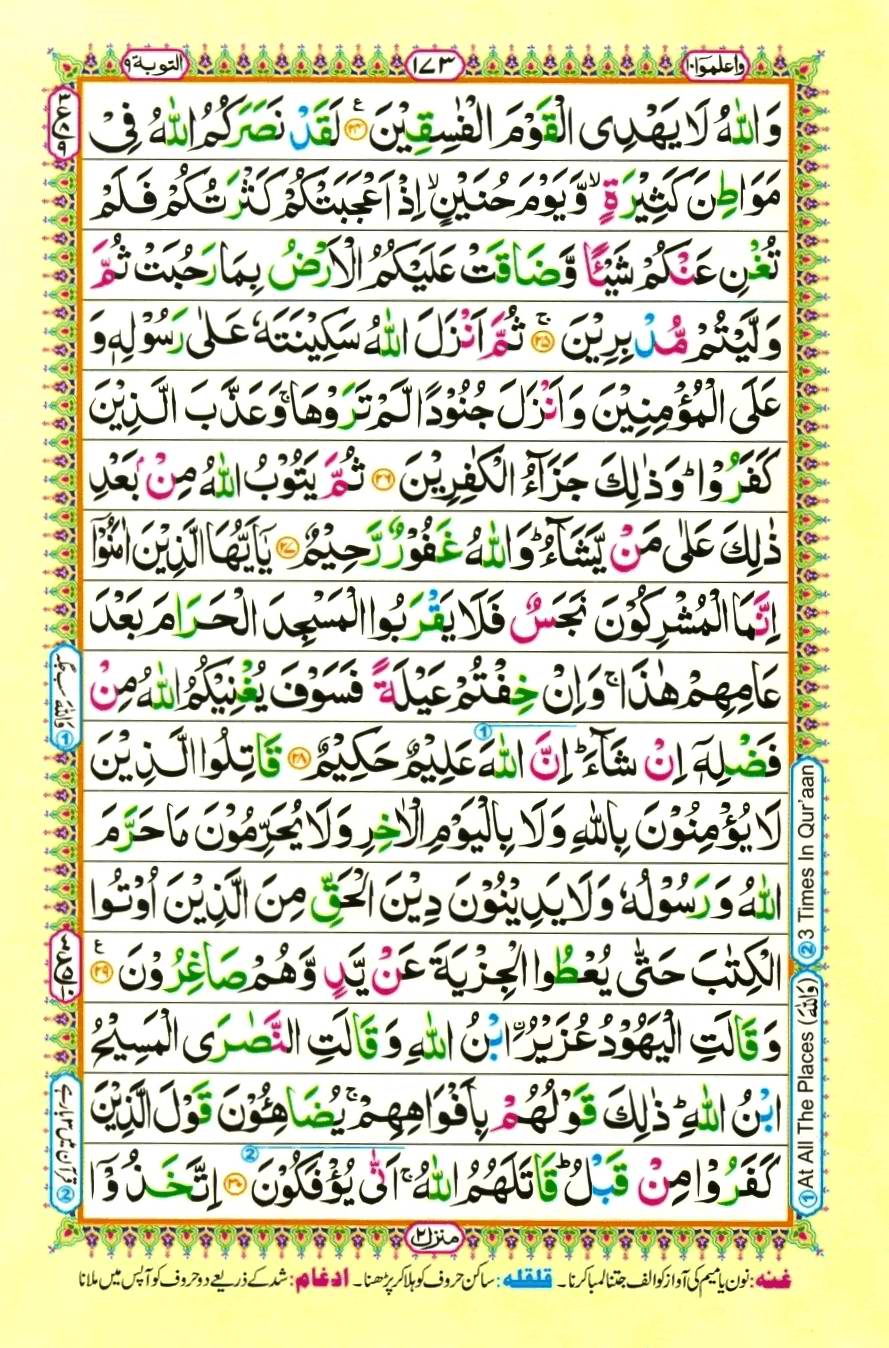 واعلموا ١٠
١٧٣
التوبة ٩
وَاللّٰهُ لَا يَهْدِى الْقَوْمَ الْفٰسِقِيْنَ ﴿٢٤﴾ لَقَدْ نَصَرَكُمُ اللّٰهُ فِىْ
مَوَاطِنَ كَثِيْرَةٍ ۙ وَّيَوْمَ حُنَيْنٍ ۙ اِذْ اَعْجَبَتْكُمْ كَثْرَتُكُمْ فَلَمْ
تُغْنِ عَنْكُمْ شَيْـًٔا وَّضَاقَتْ عَلَيْكُمُ الْاَرْضُ بِمَا رَحُبَتْ ثُمَّ
وَلَّيْتُمْ مُّدْبِرِيْنَ ﴿٢٥﴾ ثُمَّ اَنْزَلَ اللّٰهُ سَكِيْنَتَهٗ عَلٰى رَسُوْلِهٖ وَ
عَلَى الْمُؤْمِنِيْنَ وَاَنْزَلَ جُنُوْدًا لَّمْ تَرَوْهَا ۚ وَعَذَّبَ الَّذِيْنَ
كَفَرُوْا ؕ وَذٰلِكَ جَزَآءُ الْكٰفِرِيْنَ ﴿٢٦﴾ ثُمَّ يَتُوْبُ اللّٰهُ مِنْۢ بَعْدِ
ذٰلِكَ عَلٰى مَنْ يَّشَآءُ ؕ وَاللّٰهُ غَفُوْرٌ رَّحِيْمٌ ﴿٢٧﴾ يٰۤاَيُّهَا الَّذِيْنَ اٰمَنُوْۤا
اِنَّمَا الْمُشْرِكُوْنَ نَجَسٌ فَلَا يَقْرَبُوا الْمَسْجِدَ الْحَرَامَ بَعْدَ
عَامِهِمْ هٰذَا ۚ وَاِنْ خِفْتُمْ عَيْلَةً فَسَوْفَ يُغْنِيْكُمُ اللّٰهُ مِنْ
فَضْلِهٖۤ اِنْ شَآءَ ؕ اِنَّ اللّٰهَ عَلِيْمٌ حَكِيْمٌ ﴿٢٨﴾ قَاتِلُوا الَّذِيْنَ
لَا يُؤْمِنُوْنَ بِاللّٰهِ وَلَا بِالْيَوْمِ الْاٰخِرِ وَلَا يُحَرِّمُوْنَ مَا حَرَّمَ
اللّٰهُ وَرَسُوْلُهٗ وَلَا يَدِيْنُوْنَ دِيْنَ الْحَقِّ مِنَ الَّذِيْنَ اُوْتُوا
الْكِتٰبَ حَتّٰى يُعْطُوا الْجِزْيَةَ عَنْ يَّدٍ وَّهُمْ صَاغِرُوْنَ ﴿٢٩﴾
وَقَالَتِ الْيَهُوْدُ عُزَيْرُ ۨابْنُ اللّٰهِ وَقَالَتِ النَّصٰرَى الْمَسِيْحُ
ابْنُ اللّٰهِ ؕ ذٰلِكَ قَوْلُهُمْ بِاَفْوَاهِهِمْ ۚ يُضَاهِـُٔوْنَ قَوْلَ الَّذِيْنَ
كَفَرُوْا مِنْ قَبْلُ ؕ قَاتَلَهُمُ اللّٰهُ ۚ اَنّٰى يُؤْفَكُوْنَ ﴿٣٠﴾ اِتَّخَذُوْۤا
① وَاللّٰهُ سب جگہ
② قرآن میں ٣ بار ہے
① At All The Places (وَاللّٰهُ)
② 3 Times In Qur'aan
منزل ٢
غنه: نون یا میم کی آواز کو الف جتنا لمبا کرنا۔ قلقله: ساکن حروف کو ہلا کر پڑھنا۔ ادغام: شد کے ذریعے دو حروف کو آپس میں ملانا